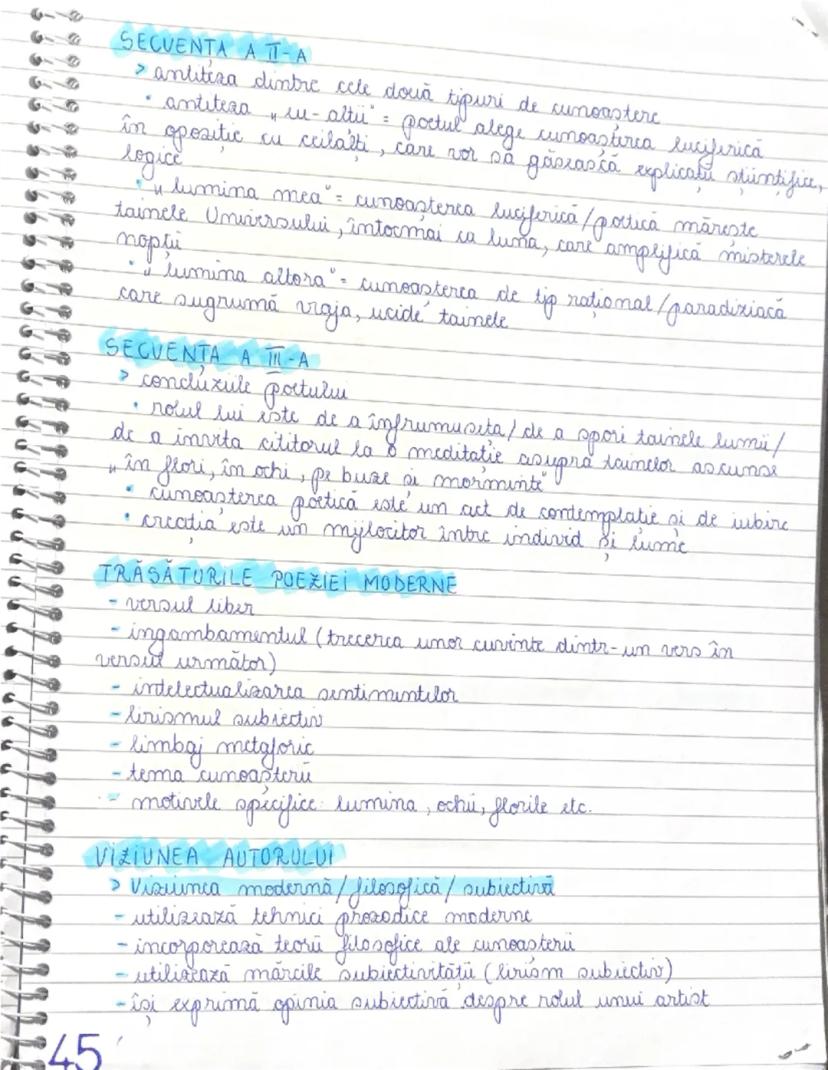 SECVENȚA A II-A
> antiteza dintre cele două tipuri de cunoaștere
• antiteza „eu-alții" = poetul alege cunoașterea luciferică
în opoziție cu ceilalți, care vor să găsească explicații științifice,
logice
• „lumina mea" = cunoașterea luciferică/poetică mărește
tainele Universului, întocmai ca luna, care amplifică misterele
nopții
• „lumina altora" = cunoașterea de tip rațional/paradiziacă
care sugrumă vraja, ucide tainele
SECVENȚA A III-A
> concluziile poetului
• rolul lui este de a înfrumuseța/de a spori tainele lumii/
de a invita cititorul la o meditație asupra tainelor ascunse
„în flori, în ochi, pe buze și morminte"
• cunoașterea poetică este un act de contemplație și de iubire
• creația este un mijlocitor între individ și lume
TRĂSĂTURILE POEZIEI MODERNE
- versul liber
- ingambamentul (trecerea unor cuvinte dintr-un vers în
versul următor)
- intelectualizarea sentimentelor
- lirismul subiectiv
- limbaj metaforic
- tema cunoașterii
- motivele specifice: lumina, ochii, florile etc.
VIZIUNEA AUTORULUI
> Viziunea modernă/filosofică/subiectivă
- utilizează tehnici prozodice moderne
- incorporează teorii filosofice ale cunoașterii
- utilizează mărcile subiectivității (lirism subiectiv)
- își exprimă opinia subiectivă despre rolul unui artist
45